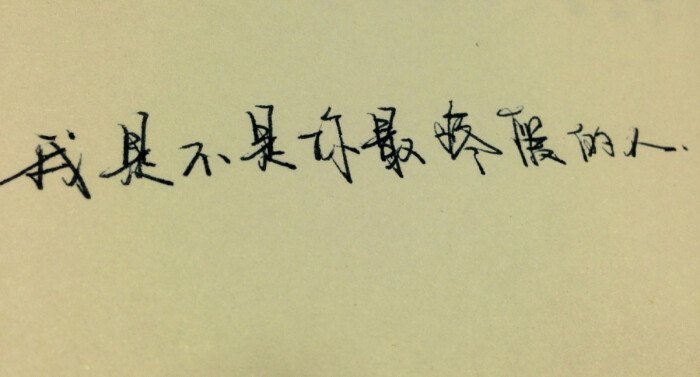 我是不是你最疼爱的人.